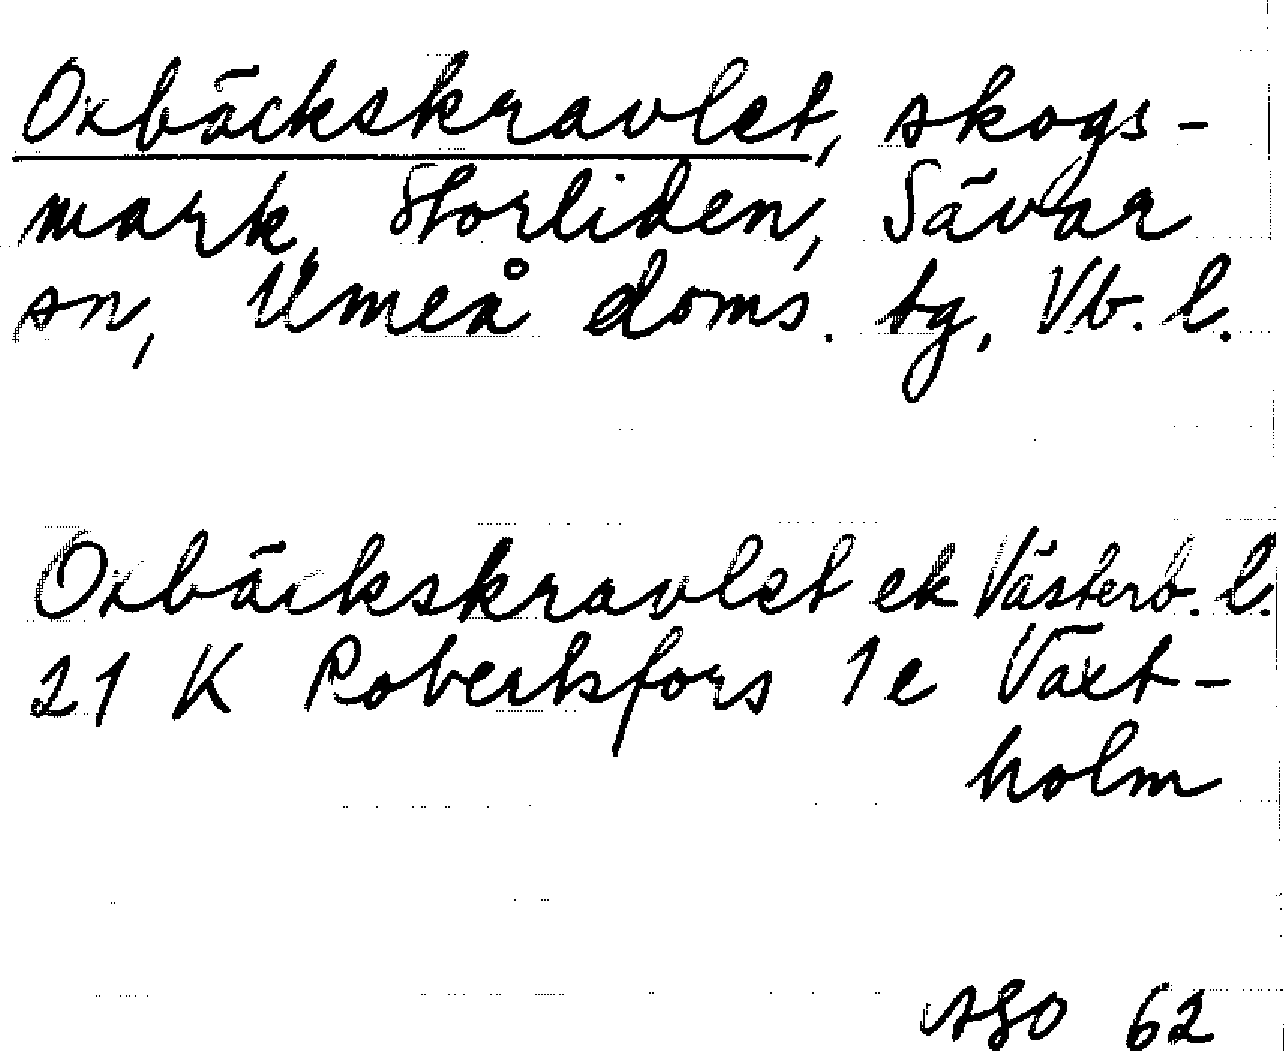 Oxbäckskravlet, skogs-
mark, Storliden, Sävar
sn, Umeå doms. tg, Vb. l.
Oxbäckskravlet ek Västerb. l.
21 K Robertsfors 1 e Vaxt-
holm
AGO 62